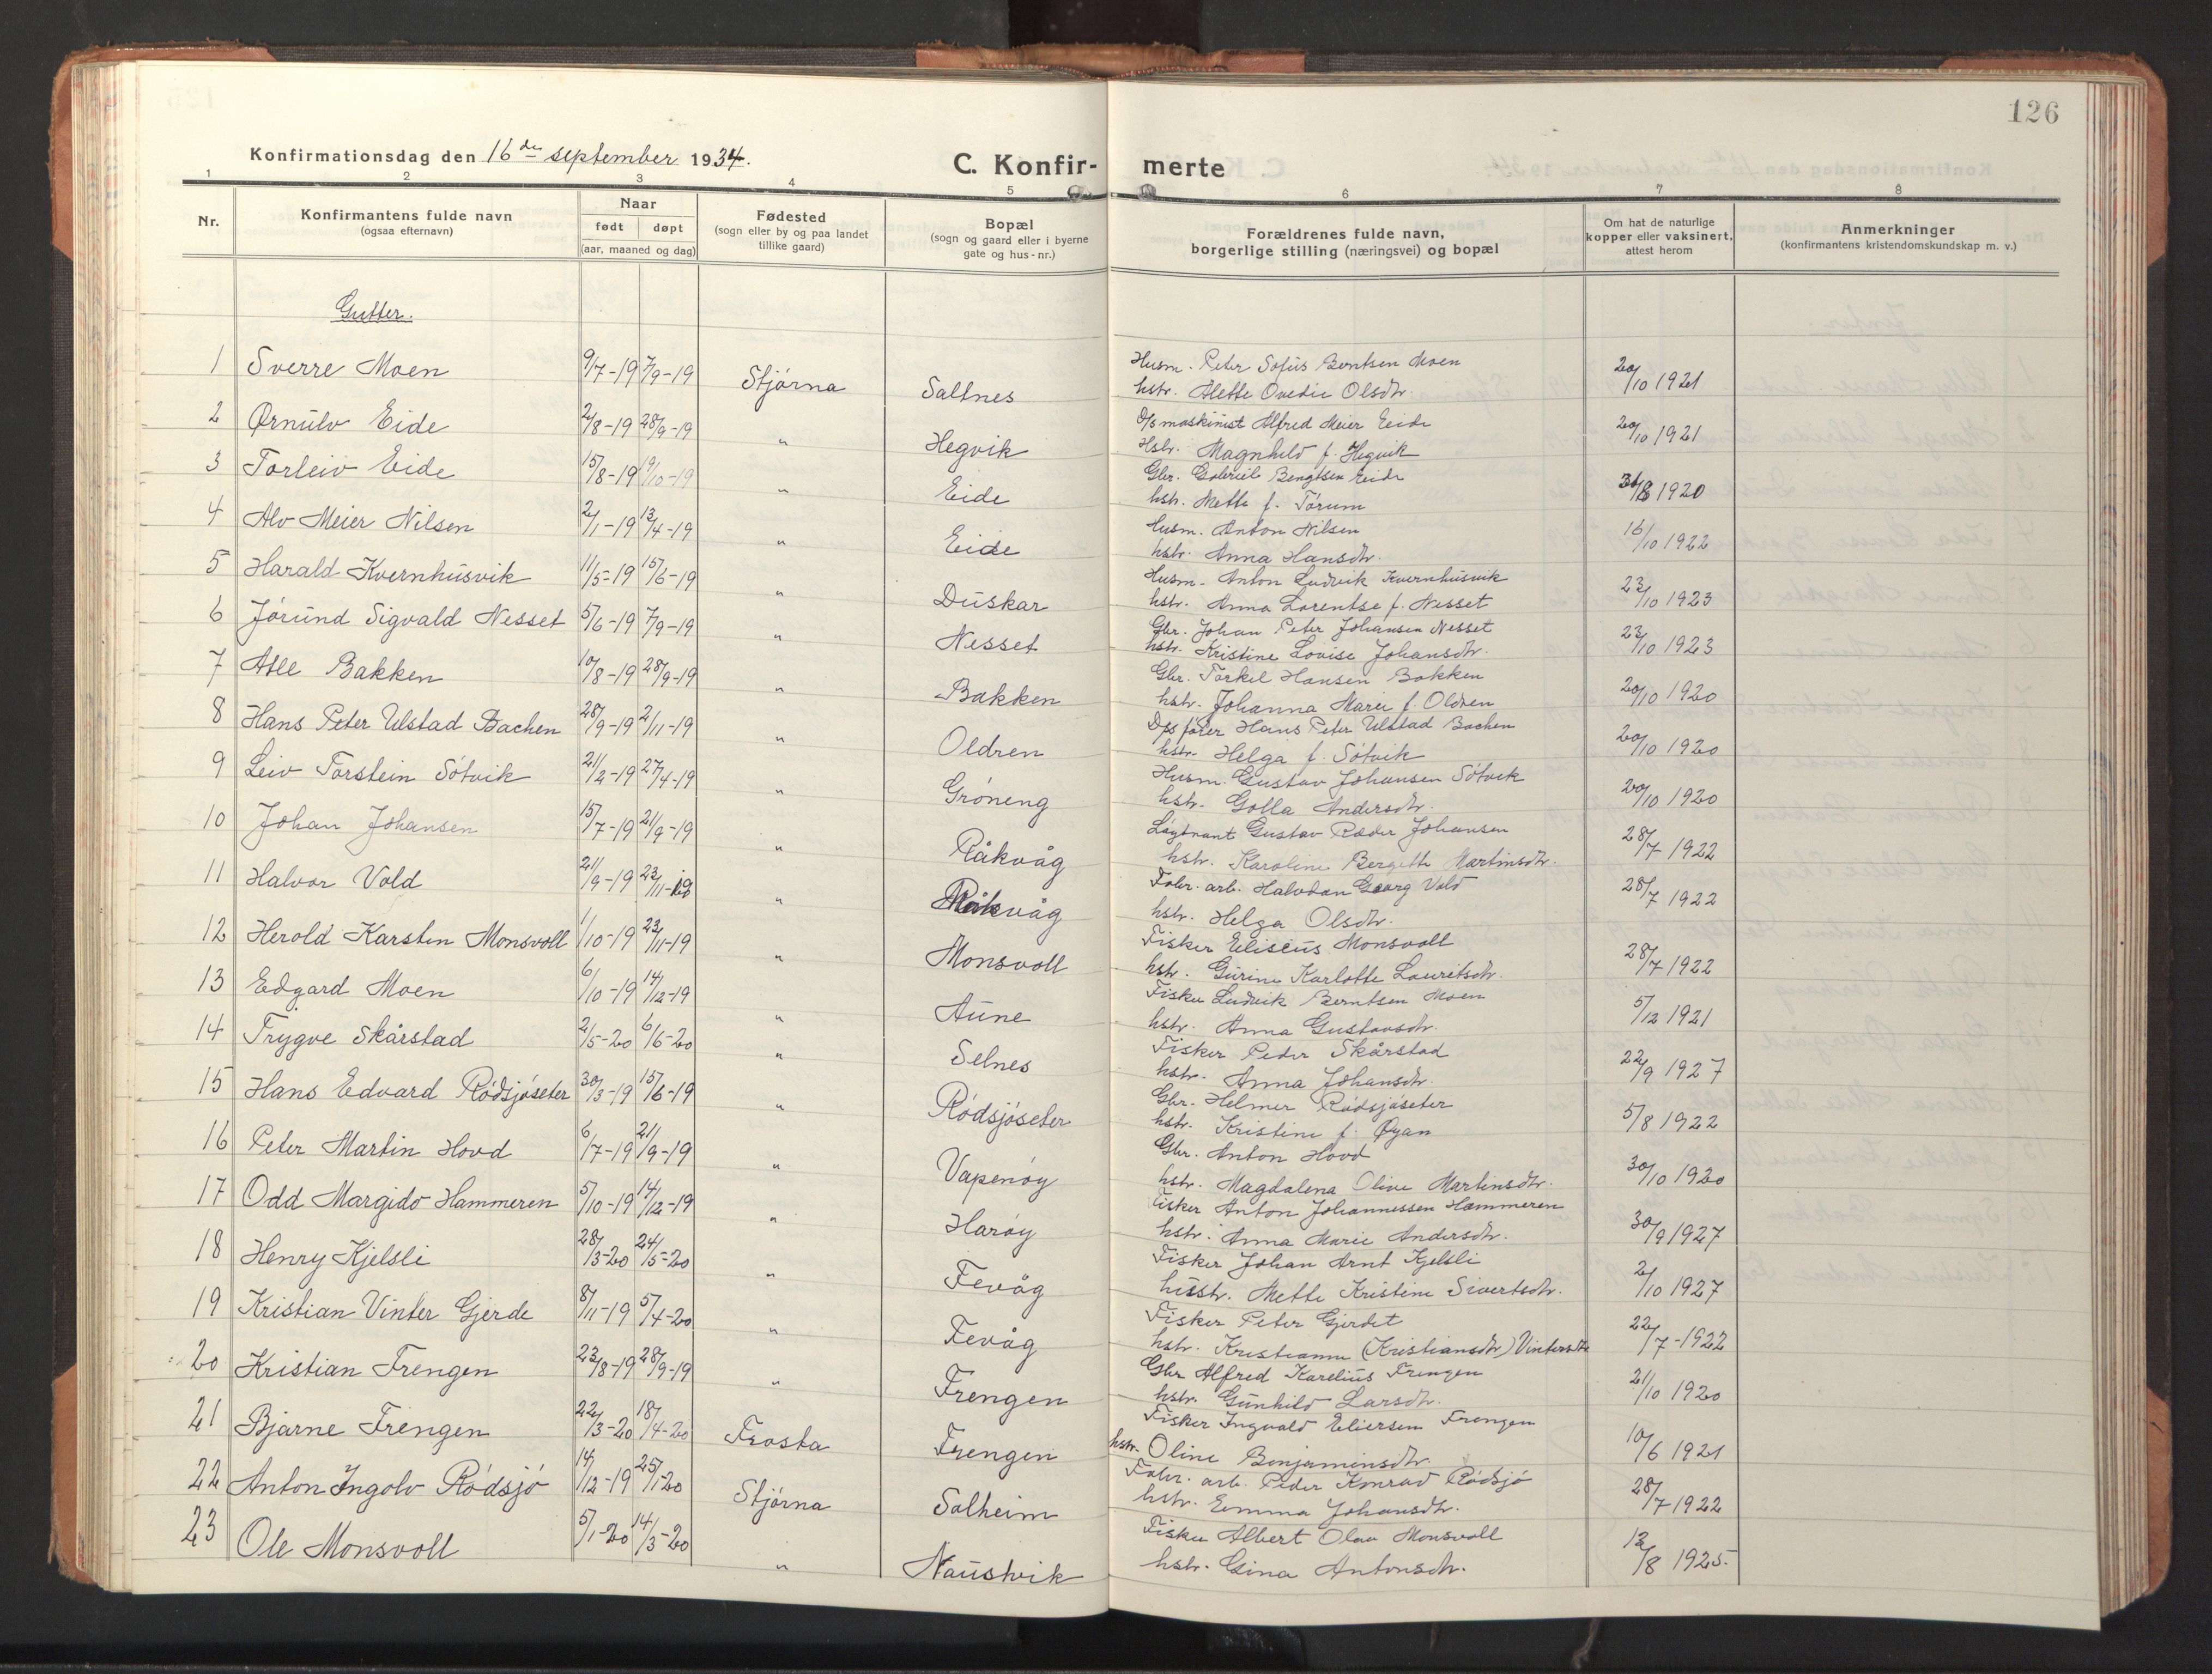 126
Konfirmationsdag den 16de september 1934.
C. Konfir- merte
1 2 3 4 5 6 7 8
Nr.
Konfirmantens fulde navn
(ogsaa efternavn)
Naar
født døpt
(aar, maaned og dag)
Fødested
(sogn eller by og paa landet
tillike gaard)
Bopæl
(sogn og gaard eller i byerne
gate og hus-nr.)
Forældrenes fulde navn,
borgerlige stilling (næringsvei) og bopæl
Om hat de naturlige
kopper eller vaksinert,
attest herom
Anmerkninger
(konfirmantens kristendomskundskap m. v.)
Gutter.
1 Sverre Moen 9/7-19 7/9-19 Stjørna Saltnes Husm. Peter Sofus Berntsen Moen 20/10 1921
hstr. Alette Ovedie Olsdtr.
2 Ørnulv Eide 2/8-19 28/9-19 " Hegvik D/s maskinist Alfred Meier Eide 20/10 1921
Hstr. Magnhild f. Hegvik
3 Torleiv Eide 15/8-19 19/10-19 " Eide Gbr. Gabriel Bengtsen Eide 31/8 1920
hstr. Mette f. Tørum
4 Alv Meier Nilsen 2/1-19 13/4-19 " Eide Husm. Anton Nilsen 16/10 1922
hstr. Anna Hansdtr.
5 Harald Kvernhusvik 11/5-19 15/6-19 " Duskar Husm. Anton Ludvik Kvernhusvik 23/10 1923
hstr. Anna Lorentse f. Nesset
6 Jørund Sigvald Nesset 5/6-19 7/9-19 " Nesset Gbr. Johan Peter Johansen Nesset 23/10 1923
hstr. Kristine Lovise Johansdtr.
7 Atle Bakken 10/8-19 28/9-19 " Bakken Gbr. Torkel Hansen Bakken 20/10 1920
hstr. Johanna Marie f. Oldren
8 Hans Peter Ulstad Bachen 28/9-19 2/11-19 " Oldren Hans Peter Ulstad Bachen 20/10 1920
hstr. Helga f. Søtvik
9 Leiv Torstein Søtvik 21/2-19 27/4-19 " Grøneng Husm. Gustav Johansen Søtvik 20/10 1920
hstr. Golla Andersdtr.
10 Johan Johansen 15/7-19 21/9-19 " Råkvåg Løytnant Gustav Ræder Johansen 28/7 1922
hstr. Karoline Bergitte Martinsdtr.
11 Halvor Vold 21/9-19 23/11-19 " Råkvåg Fabr. arb. Halvdan Georg Vold 28/7 1922
hstr. Helga Olsdtr.
12 Herold Karsten Monsvoll 1/10-19 23/11-19 " Monsvoll Fisker Eliseus Monsvoll 28/7 1922
hstr. Gurine Karlotte Lauritsdtr.
13 Edgard Moen 6/10-19 14/12-19 " Aune Fisker Ludvik Berntsen Moen 5/12 1921
hstr. Anna Gustavsdtr.
14 Trygve Skårstad 2/5-20 6/6-20 " Selnes Fisker Peder Skårstad 22/9 1927
hstr. Anna Johansdtr.
15 Hans Edvard Rødsjøseter 30/3-19 15/6-19 " Rødsjøseter Gbr. Helmer Rødsjøseter 5/8 1922
hstr. Kristine f. Øyan
16 Peter Martin Hovd 6/7-19 21/9-19 " Vapenøy Gbr. Anton Hovd 30/10 1920
hstr. Magdalena Olive Martinsdtr.
17 Odd Margido Hammeren 5/10-19 14/12-19 " Harøy Fisker Anton Johannessen Hammeren 30/9 1927
hstr. Anna Marie Andersdtr.
18 Henry Kjelsli 28/3-20 24/5-20 " Fevåg Fisker Johan Arnt Kjelsli 2/10 1927
husstr. Mette Kristine Sivertsdtr.
19 Kristian Vinter Gjerde 8/11-19 5/4-20 " Fevåg Fisker Peter Gjerdet 22/7-1922
hstr. Kristianne (Kristiansdtr) Vintersdtr
20 Kristian Frengen 23/8-19 28/9-19 " Frengen Gbr Alfred Karelius Frengen 21/10 1920
hstr. Gunhild Larsdtr.
21 Bjarne Frengen 22/3-20 18/4-20 Frosta Frengen Fisker Ingvald Eliersen Frengen 10/6 1921
hstr. Oline Benjaminsdtr.
22 Anton Ingolv Rødsjø 14/12-19 25/1-20 Stjørna Solheim Fabr. arb. Peder Konrad Rødsjø 28/7 1922
hstr. Emma Johansdtr.
23 Ole Monsvoll 5/1-20 14/3-20 " Naustvik Fisker Albert Olav Monsvoll 13/8 1925.
hstr. Gina Antonsdtr.